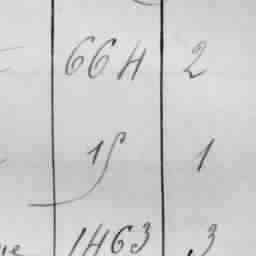 664 2
15 1
1463 3